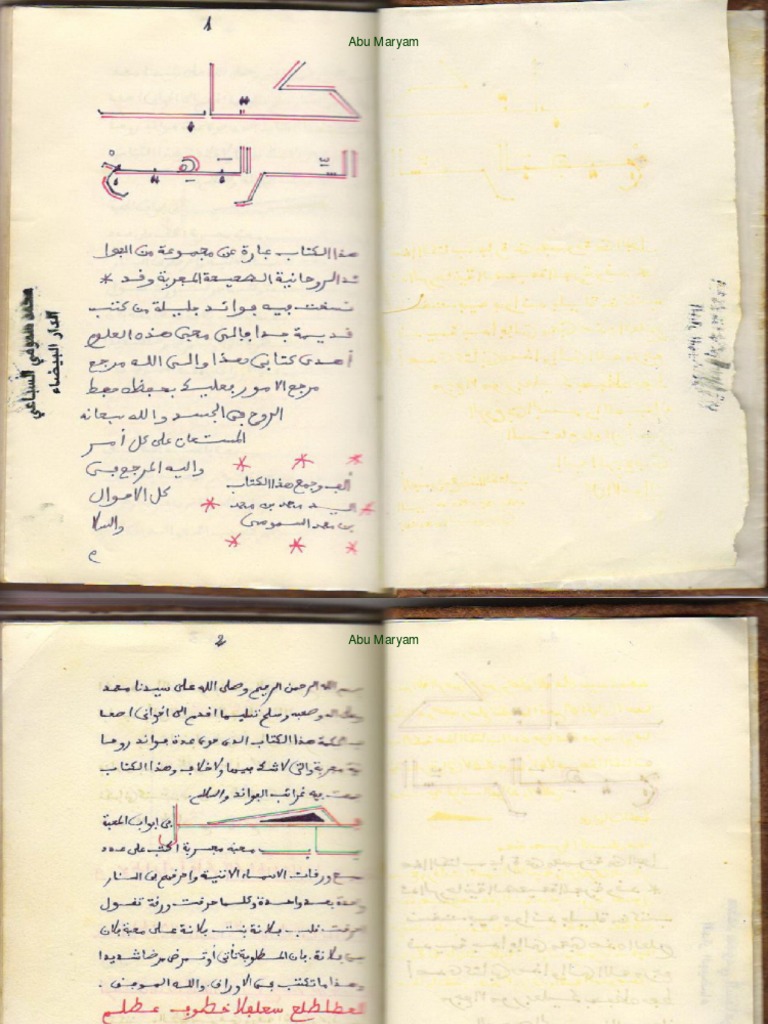 1
Abu Maryam
كتاب
السر البهيج
هذا الكتاب عبارة عن مجموعة من الفوا
ئد الروحانية الصحيحة المجربة وقد *
نسخت فيه فوائد جليلة من كتب
قديمة جدا فإلى محبي هذه العلوم
أهدي كتابي هذا وإلى الله مرجع
مرجع الامور فعليك بحفظه حفظ
الروح في الجسد والله سبحانه
المستعان على كل أمر
وإليه المرجع في
كل الأحوال
والسلا
ألف وجمع هذا الكتاب
السيد محمد بن محمد
بن محمد السمومي
محمد صمومي السباعي
الدار البيضاء
2
Abu Maryam
بسم الله الرحمن الرحيم وصلى الله على سيدنا محمد
وعلى آله وصحبه وسلم تسليما اقدم الى اخواني اصحا
ب الحكمة هذا الكتاب الذي حوى عدة فوائد روحا
نية مجربة والتي لا شك فيها ولا خلاف وهذا الكتاب
جمعت فيه غرائب الفوائد والسلام
باب في ابواب المحبة
محبة مجربة اكتب على عدد
سبع ورقات الاسماء الاتية واحرقهم في النار
واحدة بعد واحدة وكلما حرقت ورقة تقول
احرقت قلب فلانة بنت فلانة على محبة فلان
بن فلانة. فإن المطلوبة تأتي أو تمرض مرضا شديدا
وهذا ما تكتب في الاوراق والله الموفق.